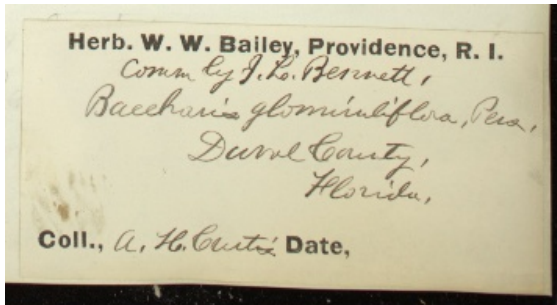 Herb. W. W. Bailey, Providence, R. I.
Comm by J. L. Bennett,
Baccharis glomiruliflora, Pers,
Duval County,
Florida,
Coll., A. H. Curtis Date,